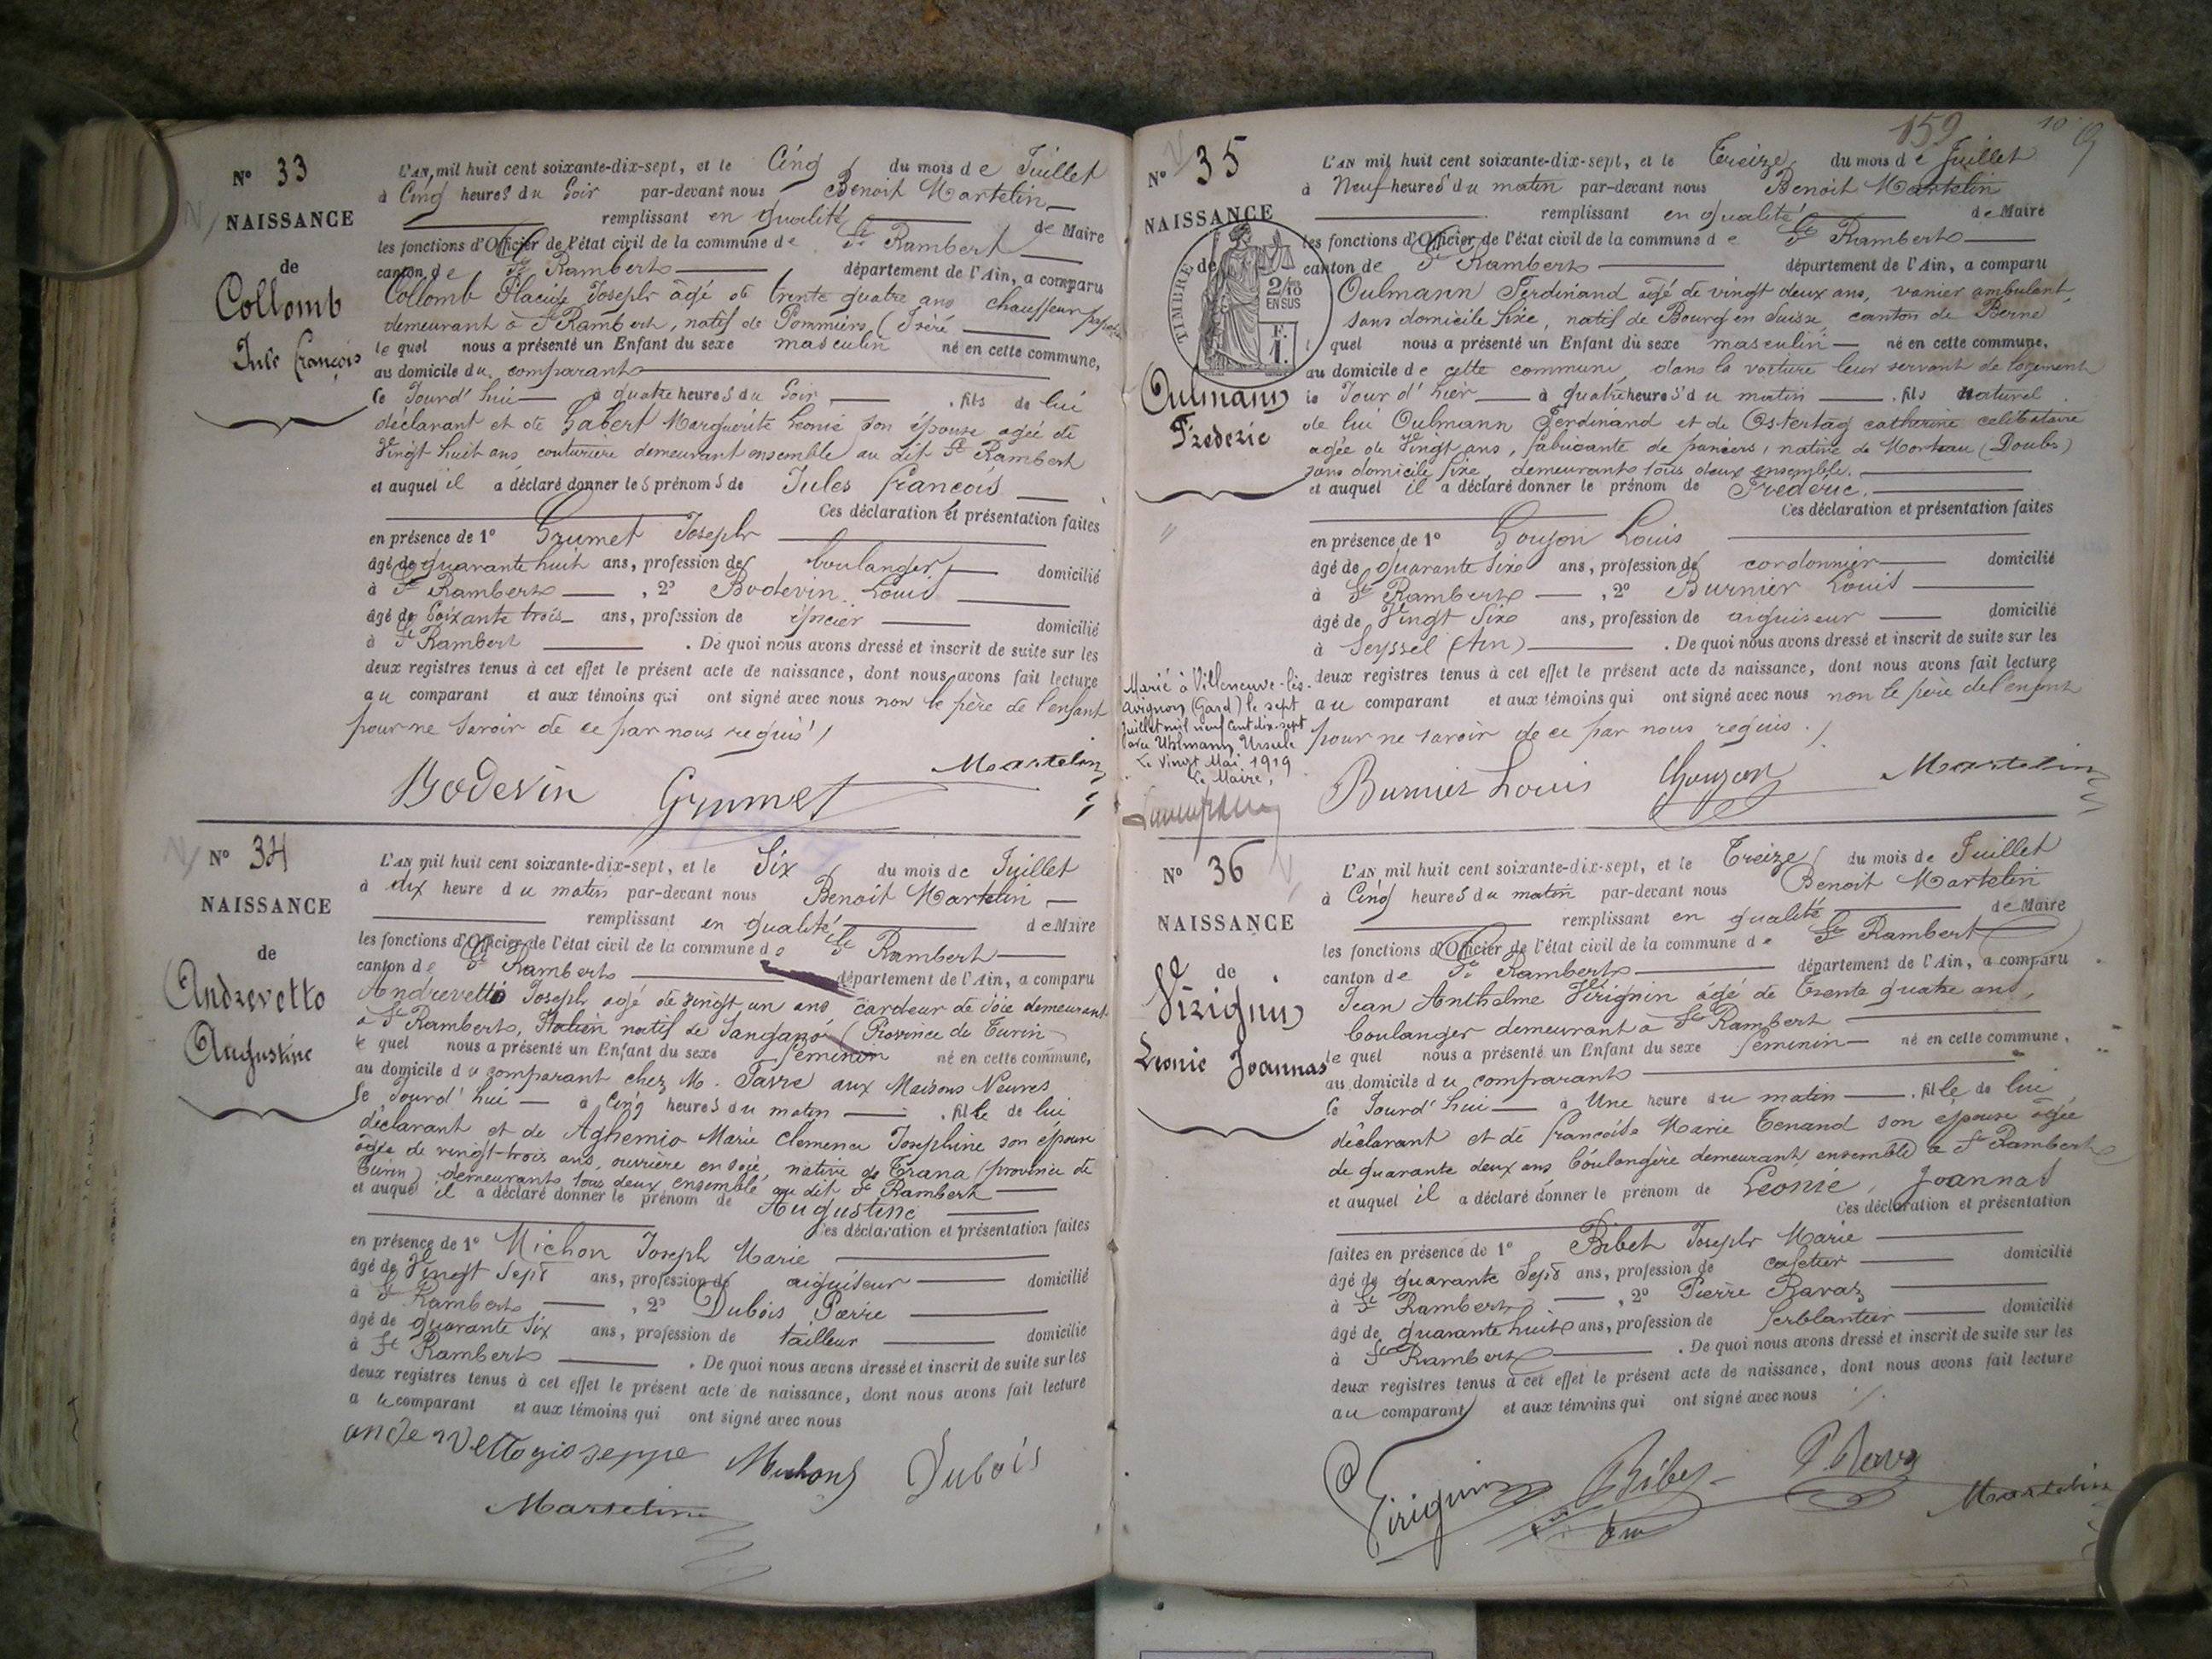 N° 33
NAISSANCE
de
Collomb
Jule françois
L'AN mil huit cent soixante-dix-sept, et le Cinq du mois de Juillet
à Cinq heures du Soir par-devant nous Benoit Martelin
remplissant en qualité de Maire
les fonctions d'Officier de l'état civil de la commune de St Rambert
canton de St Rambert département de l'Ain, a comparu
Collomb Placide Joseph âgé de trente quatre ans chauffeur
demeurant à St Rambert, natif de Pommiers (Isère
le quel nous a présenté un Enfant du sexe masculin né en cette commune,
au domicile du comparant
ce Jourd'hui à quatre heures du Soir, fils de lui
déclarant et de Gabert Marguerite Leonie son épouse agée de
Vingt huit ans couturière demeurant ensemble au dit St Rambert
et auquel il a déclaré donner les prénoms de Jules françois
Ces déclaration et présentation faites
en présence de 1° Grumet Joseph
âgé de quarante huit ans, profession de boulanger domicilié
à St Rambert, 2° Bodevin Louis
âgé de Soixante trois ans, profession de épicier domicilié
à St Rambert. De quoi nous avons dressé et inscrit de suite sur les
deux registres tenus à cet effet le présent acte de naissance, dont nous avons fait lecture
au comparant et aux témoins qui ont signé avec nous non le père de l'enfant
pour ne savoir de ce par nous requis
Bodevin Grumet Martelin
N° 34
NAISSANCE
de
Andrevetto
Augustine
L'AN mil huit cent soixante-dix-sept, et le Six du mois de Juillet
à dix heure du matin par-devant nous Benoit Martelin
remplissant en qualité de Maire
les fonctions d'Officier de l'état civil de la commune de St Rambert
canton de St Rambert département de l'Ain, a comparu
Andrevetto Joseph agé de vingt un ans cardeur de soie demeurant
à St Rambert, Italien natif de Sangano (Province de Turin
le quel nous a présenté un Enfant du sexe féminin né en cette commune,
au domicile du comparant chez M. Favre aux Maisons Neuves
ce Jourd'hui à Cinq heures du matin, fille de lui
déclarant et de Aghemio Marie Clemence Josephine son épouse
agée de vingt-trois ans, ouvrière en soie, native de Trana (province de
Turin) demeurants tous deux ensemble au dit St Rambert
et auquel il a déclaré donner le prénom de Augustine
Ces déclaration et présentation faites
en présence de 1° Michon Joseph Marie
âgé de Vingt Sept ans, profession de aiguiseur domicilié
à St Rambert, 2° Dubois Pierre
âgé de quarante Six ans, profession de tailleur domicilié
à St Rambert. De quoi nous avons dressé et inscrit de suite sur les
deux registres tenus à cet effet le présent acte de naissance, dont nous avons fait lecture
au comparant et aux témoins qui ont signé avec nous
andrevetto gioseppe Michon Dubois
Martelin
159
N° 35
NAISSANCE
de
TIMBRE
2/10
EN SUS
F.
1.
Oulmann
Frederic
L'AN mil huit cent soixante-dix-sept, et le Treize du mois de Juillet
à Neuf heures du matin par-devant nous Benoit Martelin
remplissant en qualité de Maire
les fonctions d'Officier de l'état civil de la commune de St Rambert
canton de St Rambert département de l'Ain, a comparu
Oulmann Ferdinand agé de vingt deux ans, vanier ambulant,
sans domicile fixe, natif de Bourg en Suisse, canton de Berne
quel nous a présenté un Enfant du sexe masculin né en cette commune,
au domicile de cette commune, dans la voiture leur servant de logement
le Jour d'hier à quatre heures du matin, fils naturel
de lui Oulmann Ferdinand et de Ostertag catherine celibataire
agée de Vingt ans, fabricante de paniers, native de Morteau (Doubs)
sans domicile fixe, demeurants tous deux ensemble.
et auquel il a déclaré donner le prénom de Fréderic.
Ces déclaration et présentation faites
en présence de 1° Goujon Louis
âgé de quarante Six ans, profession de cordonnier domicilié
à St Rambert, 2° Burnier Louis
âgé de Vingt Six ans, profession de aiguiseur domicilié
à Seyssel (Ain). De quoi nous avons dressé et inscrit de suite sur les
deux registres tenus à cet effet le présent acte de naissance, dont nous avons fait lecture
au comparant et aux témoins qui ont signé avec nous non le père de l'enfant
pour ne savoir de ce par nous requis.
Marié à Villeneuve-lès-
Avignon (Gard) le sept
Juillet mil neuf cent dix-sept
avec Uhlmann Ursule
Le Vingt Mai 1919
Le Maire,
Burnier Louis Goujon Martelin
N° 36
NAISSANCE
de
Virignin
Leonie Joannas
L'AN mil huit cent soixante-dix-sept, et le Treize du mois de Juillet
à Cinq heures du matin par-devant nous Benoit Martelin
remplissant en qualité de Maire
les fonctions d'Officier de l'état civil de la commune de St Rambert
canton de St Rambert département de l'Ain, a comparu
Jean Anthelme Virignin agé de Trente quatre ans,
boulanger demeurant à St Rambert
le quel nous a présenté un Enfant du sexe féminin né en cette commune,
au domicile du comparant
ce Jourd'hui à Une heure du matin, fille de lui
déclarant et de françoise Marie Tenand son epouse agée
de quarante deux ans boulangère demeurant ensemble à St Rambert
et auquel il a déclaré donner le prénom de Leonie, Joannas
Ces déclaration et présentation
faites en présence de 1° Bibet Joseph Marie
âgé de quarante Sept ans, profession de cafetier domicilié
à St Rambert, 2° Pierre Ravaz
âgé de quarante huit ans, profession de ferblantier domicilié
à St Rambert. De quoi nous avons dressé et inscrit de suite sur les
deux registres tenus à cet effet le présent acte de naissance, dont nous avons fait lecture
au comparant et aux témoins qui ont signé avec nous
Virignin Bibet P. Ravaz Martelin